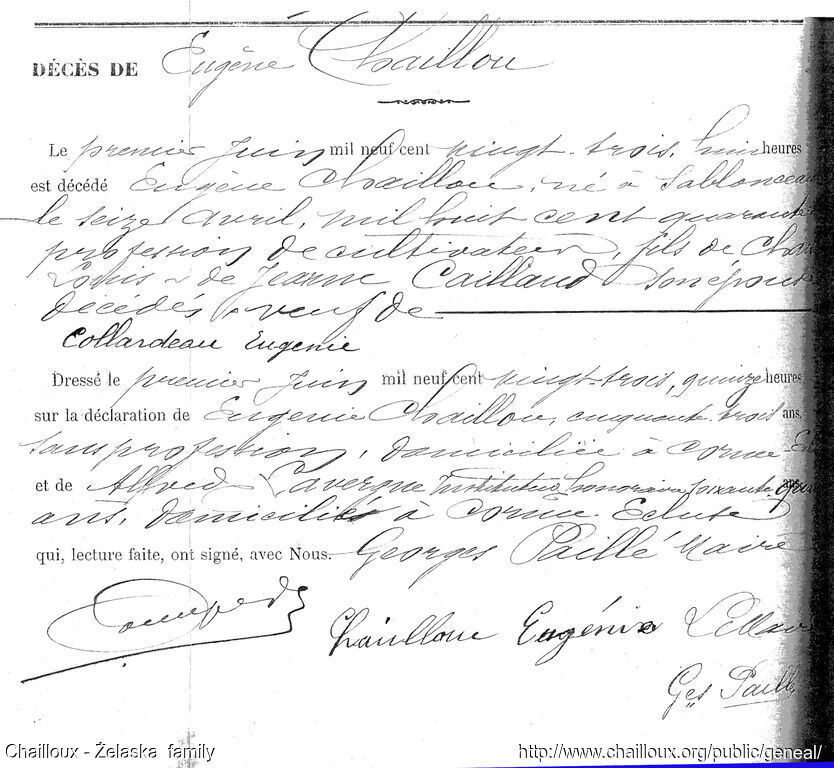 DÉCÈS DE Eugène Chaillou
Le premier Juin mil neuf cent vingt-trois, huit heures
est décédé Eugène Chaillou, né à Sablonceau
le seize avril, mil huit cent quarante
profession de cultivateur, fils de
Louis & de Jeanne Caillaud son épouse
décédés, veuf de
Collardeau Eugenie
Dressé le premier Juin mil neuf cent vingt-trois, quinze heures
sur la déclaration de Eugénie Chaillou, cinquante-trois ans,
sans profession, domiciliée à Corme-
et de Alfred Lavergne Instituteur honoraire soixante
ans, domiciliés à Corme Ecluse
qui, lecture faite, ont signé, avec Nous. Georges Paillé Maire
Chaillou Eugénie
Ges Paill
Chailloux - Želaska family http://www.chailloux.org/public/geneal/